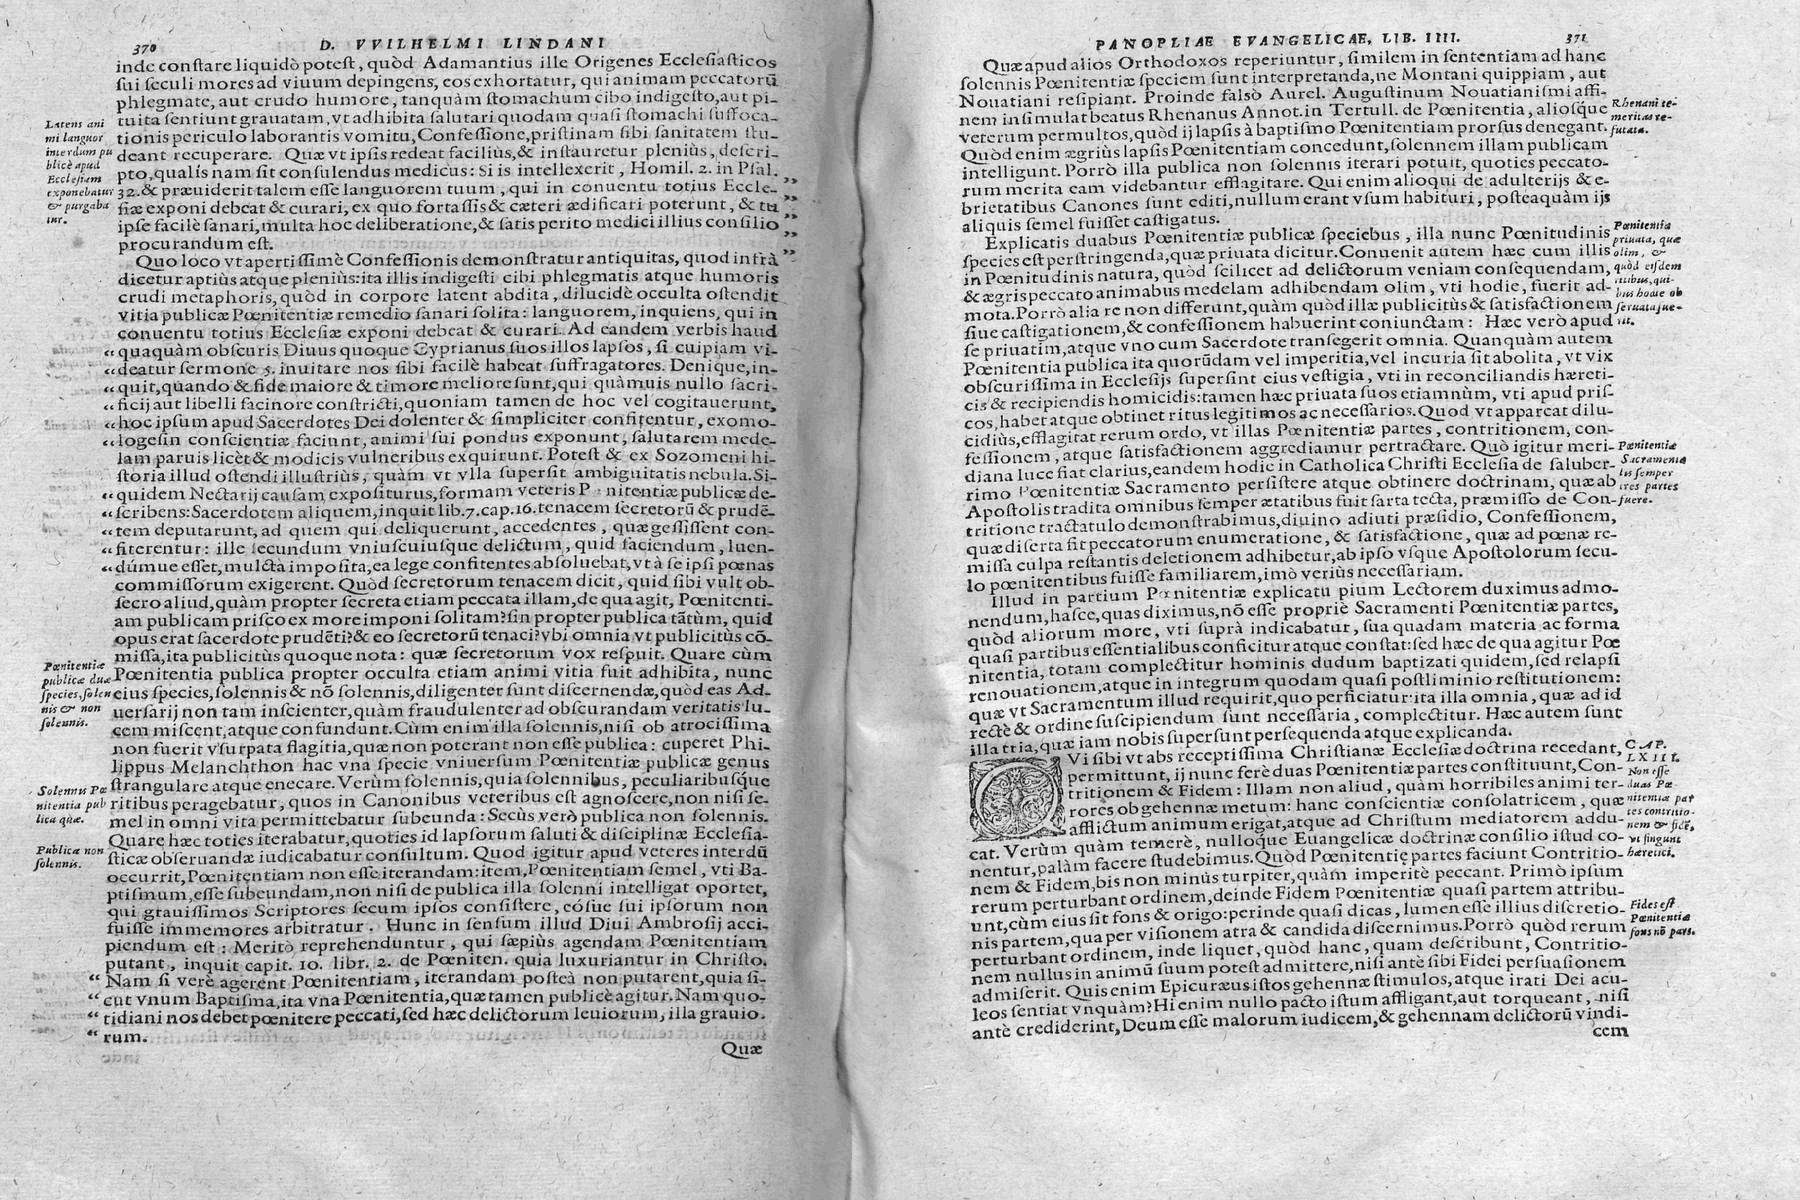 370
D. VVILHELMI LINDANI
inde constare liquidò potest, quòd Adamantius ille Origenes Ecclesiasticos
sui seculi mores ad viuum depingens, eos exhortatur, qui animam peccatorū
phlegmate, aut crudo humore, tanquàm stomachum cibo indigesto, aut pi-
tuita sentiunt grauatam, vt adhibita salutari quodam quasi stomachi suffoca-
tionis periculo laborantis vomitu, Confessione, pristinam sibi sanitatem stu-
deant recuperare. Quæ vt ipsis redeat faciliùs, & instauretur pleniùs, descri-
pto, qualis nam sit consulendus medicus: Si is intellexerit, Homil. 2. in Psal.
32. & præuiderit talem esse languorem tuum, qui in conuentu totius Eccle-
siæ exponi debeat & curari, ex quo fortassis & cæteri ædificari poterunt, & tu
ipse facilè sanari, multa hoc deliberatione, & satis perito medici illius consilio
procurandum est.
Latens ani
mi languor
interdum pu
blicè apud
Ecclesiam
exponebatur
& purgaba
tur.
Quo loco vt apertissimè Confessionis demonstratur antiquitas, quod infrà
dicetur aptiùs atque pleniùs: ita illis indigesti cibi phlegmatis atque humoris
crudi metaphoris, quòd in corpore latent abdita, dilucidè occulta ostendit
vitia publicæ Pœnitentiæ remedio sanari solita: languorem, inquiens, qui in
conuentu totius Ecclesiæ exponi debeat & curari. Ad eandem verbis haud
“ quaquàm obscuris Diuus quoque Cyprianus suos illos lapsos, si cuipiam vi-
“ deatur sermone 5. inuitare nos sibi facilè habeat suffragatores. Denique, in-
“ quit, quando & fide maiore & timore meliore sunt, qui quàmuis nullo sacri-
“ ficij aut libelli facinore constricti, quoniam tamen de hoc vel cogitauerunt,
“ hoc ipsum apud Sacerdotes Dei dolenter & simpliciter confitentur, exomo-
“ logesin conscientiæ faciunt, animi sui pondus exponunt, salutarem mede-
lam paruis licèt & modicis vulneribus exquirunt. Potest & ex Sozomeni hi-
storia illud ostendi illustriùs, quàm vt vlla supersit ambiguitatis nebula. Si-
“ quidem Nectarij causam expositurus, formam veteris Pœnitentiæ publicæ de-
“ scribens: Sacerdotem aliquem, inquit lib. 7. cap. 16. tenacem secretorū & prudē-
“ tem deputarunt, ad quem qui deliquerunt, accedentes, quæ gessissent con-
“ fiterentur: ille secundum vniuscuiusque delictum, quid faciendum, luen-
“ dúmue esset, mulcta imposita, ea lege confitentes absoluebat, vt à se ipsi pœnas
commissorum exigerent. Quòd secretorum tenacem dicit, quid sibi vult ob-
secro aliud, quàm propter secreta etiam peccata illam, de qua agit, Pœnitenti-
am publicam prisco ex more imponi solitam? sin propter publica tātùm, quid
opus erat sacerdote prudēti? & eo secretorū tenaci? vbi omnia vt publicitùs cō-
missa, ita publicitùs quoque nota: quæ secretorum vox respuit. Quare cùm
Pœnitentia publica propter occulta etiam animi vitia fuit adhibita, nunc
eius species, solennis & nō solennis, diligenter sunt discernendæ, quòd eas Ad-
uersarij non tam inscienter, quàm fraudulenter ad obscurandam veritatis lu-
cem miscent, atque confundunt. Cùm enim illa solennis, nisi ob atrocissima
non fuerit vsurpata flagitia, quæ non poterant non esse publica: cuperet Phi-
lippus Melanchthon hac vna specie vniuersum Pœnitentiæ publicæ genus
strangulare atque enecare. Verùm solennis, quia solennibus, peculiaribusque
ritibus peragebatur, quos in Canonibus veteribus est agnoscere, non nisi se-
mel in omni vita permittebatur subeunda: Secùs verò publica non solennis.
Quare hæc toties iterabatur, quoties id lapsorum saluti & disciplinæ Ecclesia-
sticæ obseruandæ iudicabatur consultum. Quod igitur apud veteres interdū
occurrit, Pœnitentiam non esse iterandam: item, Pœnitentiam semel, vti Ba-
ptismum, esse subeundam, non nisi de publica illa solenni intelligat oportet,
qui grauissimos Scriptores secum ipsos consistere, cósue sui ipsorum non
fuisse immemores arbitratur. Hunc in sensum illud Diui Ambrosij acci-
piendum est: Meritò reprehenduntur, qui sæpiùs agendam Pœnitentiam
putant, inquit capit. 10. libr. 2. de Pœniten. quia luxuriantur in Christo.
“ Nam si verè agerent Pœnitentiam, iterandam posteà non putarent, quia si-
“ cut vnum Baptisma, ita vna Pœnitentia, quæ tamen publicè agitur. Nam quo-
“ tidiani nos debet pœnitere peccati, sed hæc delictorum leuiorum, illa grauio.
“ rum.
Quæ
Pœnitentiæ
publicæ duæ
species, solen
nis & non
solennis.
Solennis Pœ
nitentia pub
lica quæ.
Publica non
solennis.
PANOPLIAE EVANGELICAE, LIB. IIII.
371
Quæ apud alios Orthodoxos reperiuntur, similem in sententiam ad hanc
solennis Pœnitentiæ speciem sunt interpretanda, ne Montani quippiam, aut
Nouatiani resipiant. Proinde falsò Aurel. Augustinum Nouatianismi affi-
nem insimulat beatus Rhenanus Annot. in Tertull. de Pœnitentia, aliosque
veterum permultos, quòd ij lapsis à baptismo Pœnitentiam prorsus denegant.
Quòd enim ægriùs lapsis Pœnitentiam concedunt, solennem illam publicam
intelligunt. Porrò illa publica non solennis iterari potuit, quoties peccato-
rum merita eam videbantur efflagitare. Qui enim alioqui de adulterijs & e-
brietatibus Canones sunt editi, nullum erant vsum habituri, posteaquàm ijs
aliquis semel fuisset castigatus.
Rhenani te-
meritas re-
futata.
Explicatis duabus Pœnitentiæ publicæ speciebus, illa nunc Pœnitudinis
species est perstringenda, quæ priuata dicitur. Conuenit autem hæc cum illis
in Pœnitudinis natura, quòd scilicet ad delictorum veniam consequendam,
& ægris peccato animabus medelam adhibendam olim, vti hodie, fuerit ad-
mota. Porrò alia re non differunt, quàm quòd illæ publicitùs & satisfactionem
siue castigationem, & confessionem habuerint coniunctam: Hæc verò apud
se priuatim, atque vno cum Sacerdote transegerit omnia. Quanquàm autem
Pœnitentia publica ita quorūdam vel imperitia, vel incuria sit abolita, vt vix
obscurissima in Ecclesijs supersint eius vestigia, vti in reconciliandis hæreti-
cis & recipiendis homicidis: tamen hæc priuata suos etiamnùm, vti apud pris-
cos, habet atque obtinet ritus legitimos ac necessarios. Quod vt appareat dilu-
cidiùs, efflagitat rerum ordo, vt illas Pœnitentiæ partes, contritionem, con-
fessionem, atque satisfactionem aggrediamur pertractare. Quò igitur meri-
diana luce fiat clarius, eandem hodie in Catholica Christi Ecclesia de saluber-
rimo Pœnitentiæ Sacramento persistere atque obtinere doctrinam, quæ ab
Apostolis tradita omnibus semper ætatibus fuit sarta tecta, præmisso de Con-
tritione tractatulo demonstrabimus, diuino adiuti præsidio, Confessionem,
quæ diserta sit peccatorum enumeratione, & satisfactione, quæ ad pœnæ re-
missa culpa restantis deletionem adhibetur, ab ipso vsque Apostolorum secu-
lo pœnitentibus fuisse familiarem, imò veriùs necessariam.
Pœnitentia
priuata, quæ
olim, &
quòd eisdem
ritibus, qui-
bus hodie ob
seruata fue-
rit.
Pœnitentiæ
Sacramenta
lis semper
tres partes
fuere.
Illud in partium Pœnitentiæ explicatu pium Lectorem duximus admo-
nendum, hasce, quas diximus, nō esse propriè Sacramenti Pœnitentiæ partes,
quòd aliorum more, vti suprà indicabatur, sua quadam materia ac forma
quasi partibus essentialibus conficitur atque constat: sed hæc de qua agitur Pœ
nitentia, totam complectitur hominis dudum baptizati quidem, sed relapsi
renouationem, atque in integrum quodam quasi postliminio restitutionem:
quæ vt Sacramentum illud requirit, quo perficiatur: ita illa omnia, quæ ad id
rectè & ordine suscipiendum sunt necessaria, complectitur. Hæc autem sunt
illa tria, quæ iam nobis supersunt persequenda atque explicanda.
CAP.
LXIII.
QVi sibi vt abs receptissima Christianæ Ecclesiæ doctrina recedant,
permittunt, ij nunc ferè duas Pœnitentiæ partes constituunt, Con-
tritionem & Fidem: Illam non aliud, quàm horribiles animi ter-
rores ob gehennæ metum: hanc conscientiæ consolatricem, quæ
afflictum animum erigat, atque ad Christum mediatorem addu-
cat. Verùm quàm temerè, nulloque Euangelicæ doctrinæ consilio istud co-
nentur, palàm facere studebimus. Quòd Pœnitentię partes faciunt Contritio-
nem & Fidem, bis non minùs turpiter, quàm imperitè peccant. Primò ipsum
rerum perturbant ordinem, deinde Fidem Pœnitentiæ quasi partem attribu-
unt, cùm eius sit fons & origo: perinde quasi dicas, lumen esse illius discretio-
nis partem, qua per visionem atra & candida discernimus. Porrò quòd rerum
perturbant ordinem, inde liquet, quòd hanc, quam describunt, Contritio-
nem nullus in animū suum potest admittere, nisi antè sibi Fidei persuasionem
admiserit. Quis enim Epicuræus istos gehennæ stimulos, atque irati Dei acu-
leos sentiat vnquàm? Hi enim nullo pacto istum affligant, aut torqueant, nisi
antè crediderint, Deum esse malorum iudicem, & gehennam delictorū vindi-
cem
Non esse
duas Pœ-
nitentiæ par
tes contritio-
nem & fidē,
vt fingunt
hæretici.
Fides est
Pœnitentiæ
fons nō pars.